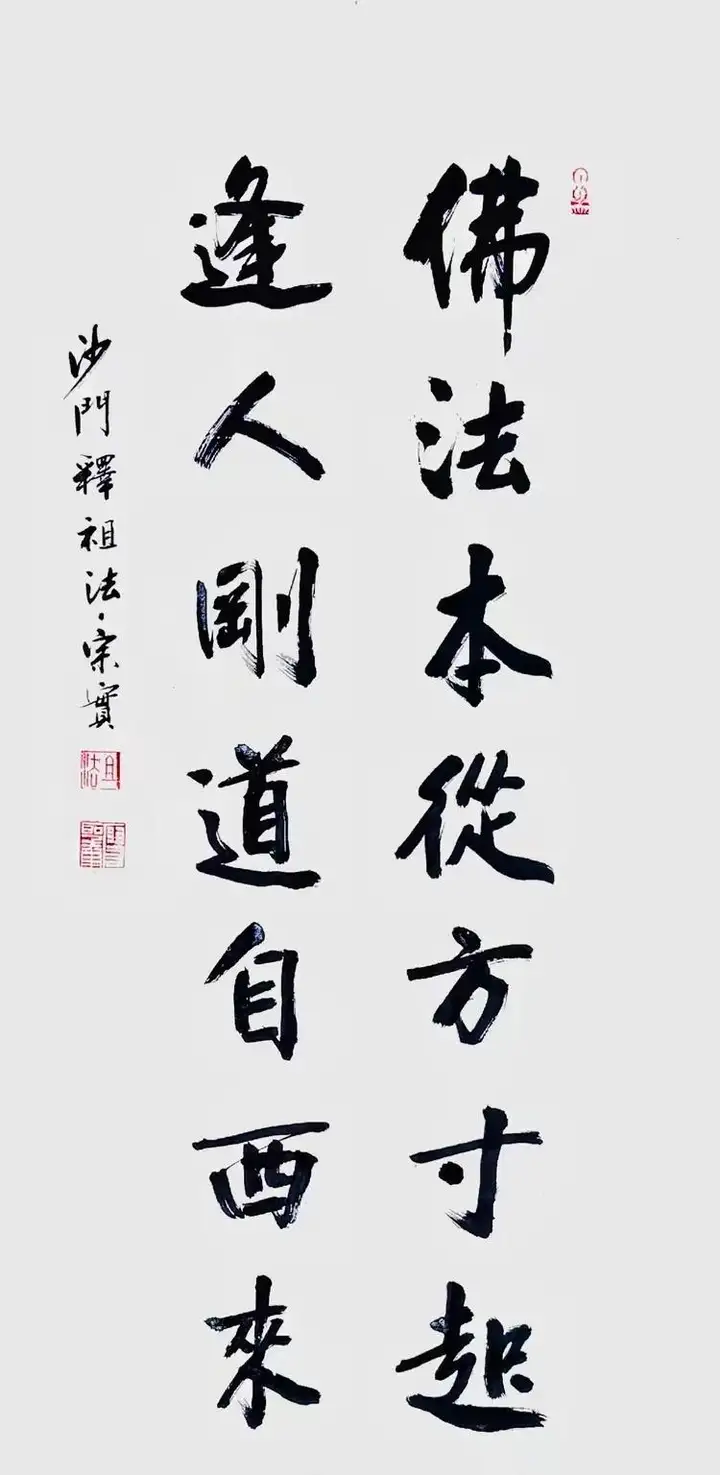 佛法本從方寸起
逢人剛道自西來
沙門釋祖法·宗實
祖法